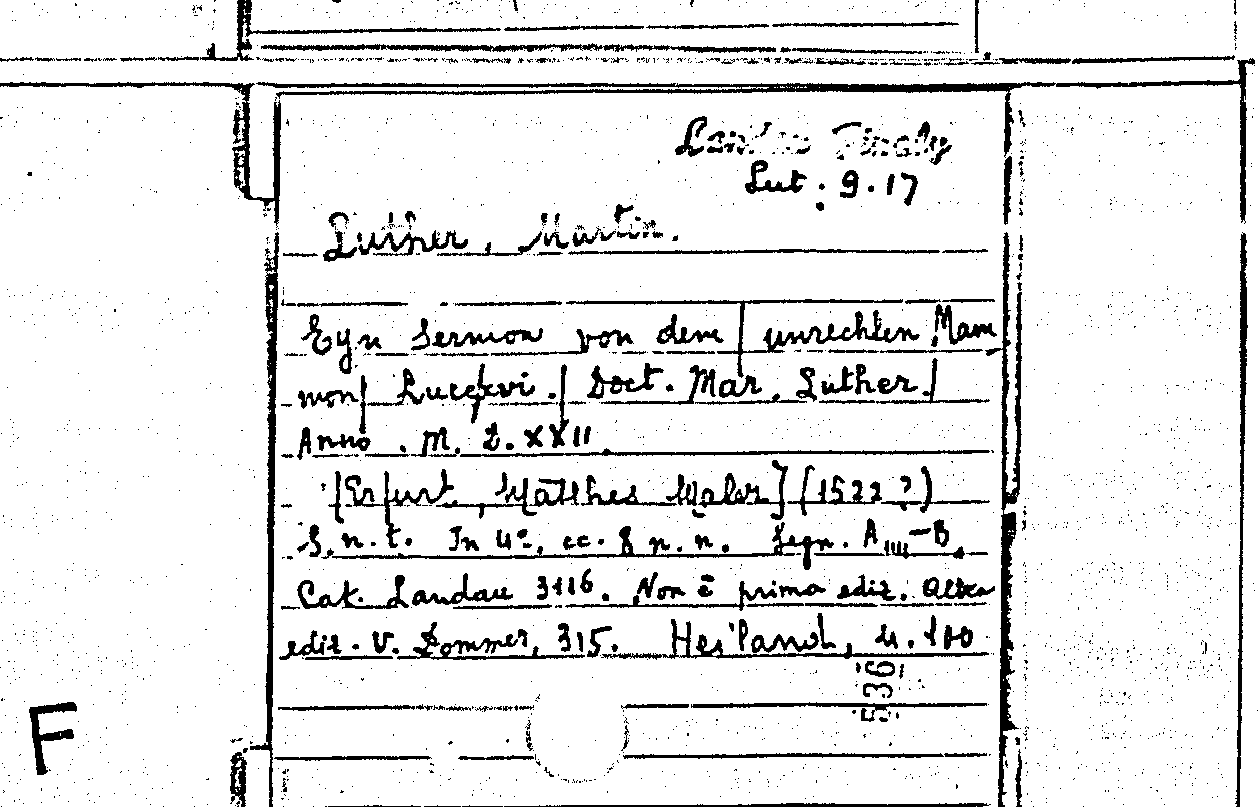 Landau Finaly
Lut. 9.17
Luther, Martin.
Eyn Sermon von dem | unrechten Mam
mon | Luce xvi. | Doct. Mar. Luther. |
Anno . M. D. XXII.
[Erfurt, Matthes Maler] (1522?)
S. n. t. In 4º, cc. 8 n. n. Segn. A IIII - B
Cat. Landau 3116. Non è prima ediz. Altra
ediz. v. Dommer, 315.
536
F